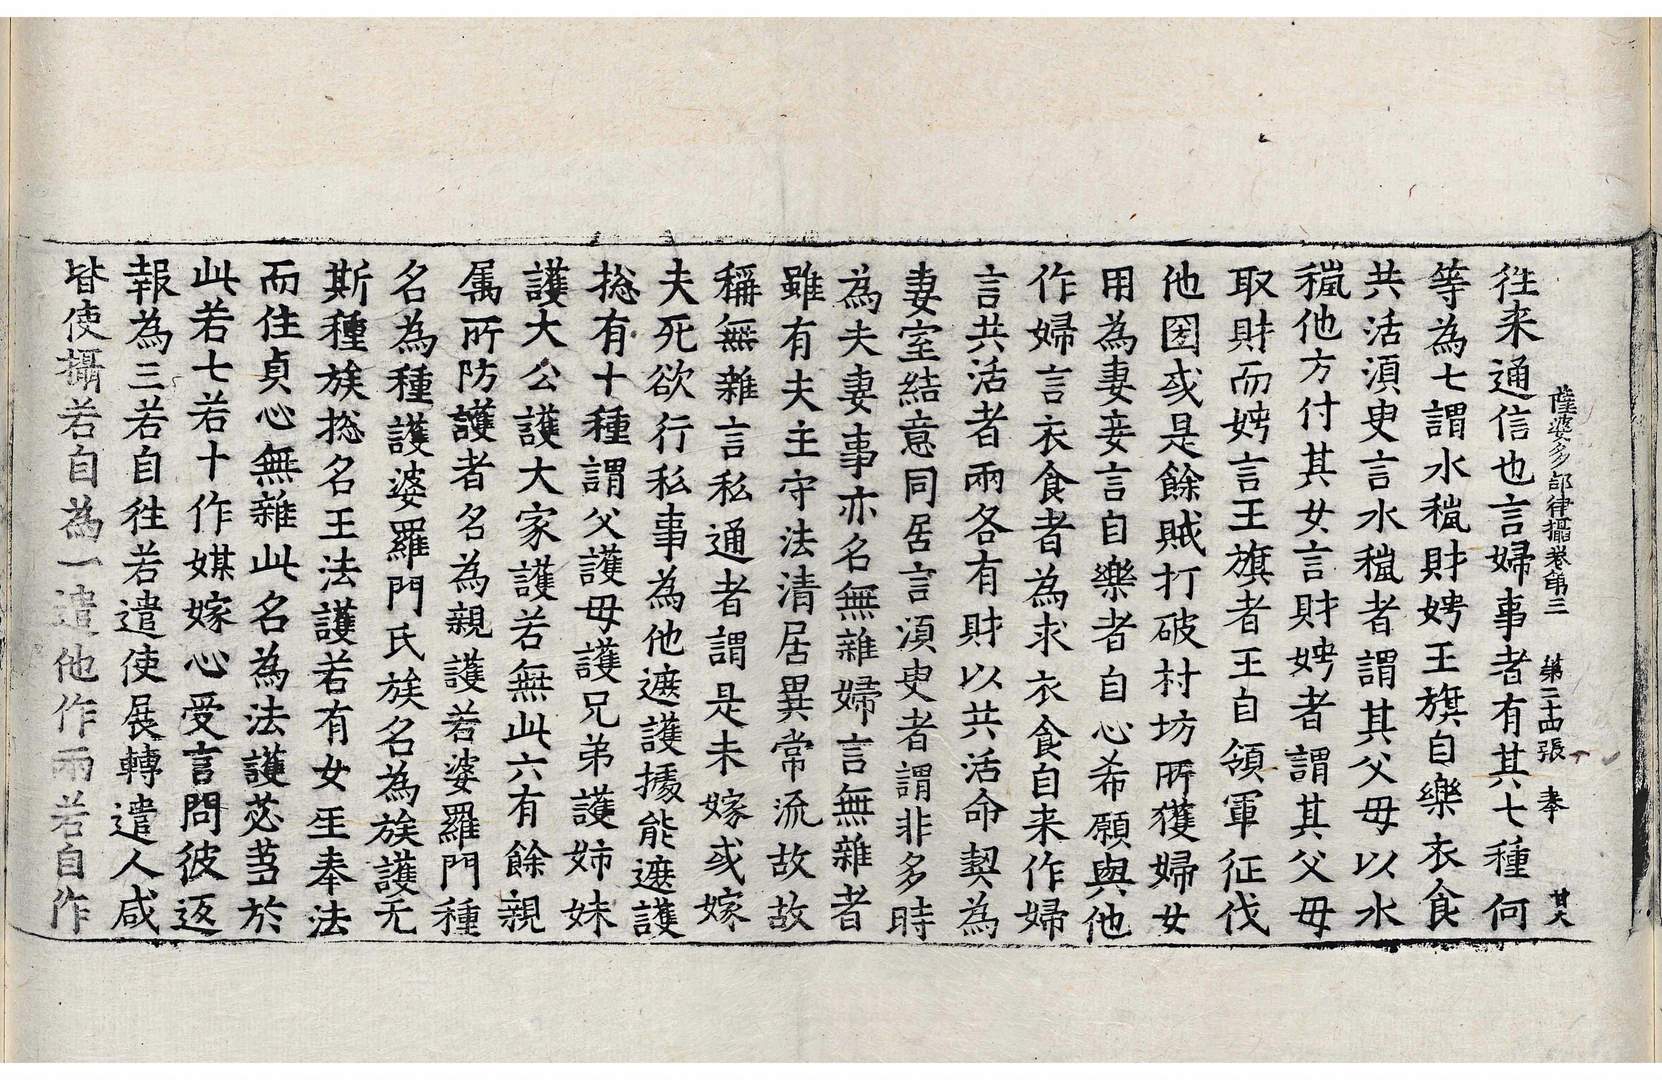 薩婆多部律攝卷第三 第二十四張 奉 甘大
往来通信也言婦事者有其七種何
等為七謂水授財娉王旗自樂衣食
共活湏臾言水授者謂其父母以水
授他方付其女言財娉者謂其父母
取財而娉言王旗者王自領軍征伐
他囶或是餘賊打破村坊所獲婦女
用為妻妾言自樂者自心希願與他
作婦言衣食者為求衣食自来作婦
言共活者兩各有財以共活命契為
妻室結意同居言湏臾者謂非多時
為夫妻事亦名無雜婦言無雜者
雖有夫主守法清居異常流故故
稱無雜言私通者謂是未嫁或嫁
夫死欲行私事為他遮護據能遮護
捴有十種謂父護母護兄弟護姉妹
護大公護大家護若無此六有餘親
属所防護者名為親護若婆羅門種
名為種護婆羅門氏族名為族護无
斯種族捴名王法護若有女至奉法
而住貞心無雜此名為法護苾芻於
此若七若十作媒嫁心受言問彼返
報為三若自往若遣使展轉遣人咸
皆使攝若自為一遣他作兩若自作